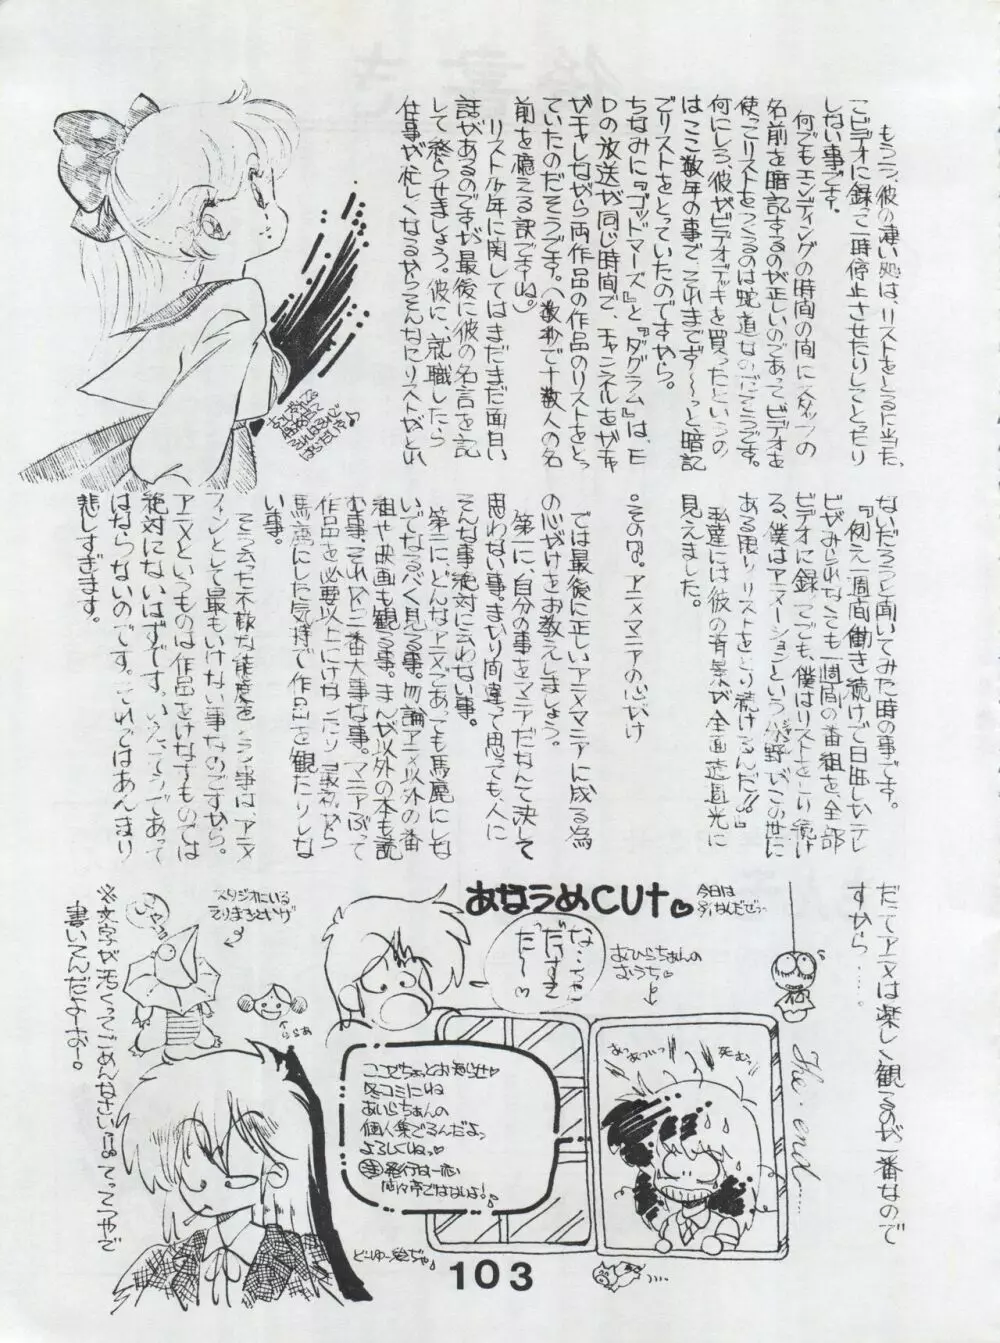 もう一つ、彼の凄い処は、リストをとるに当たっ
てビデオに録って一時停止させたりしてとったり
しない事です。
何でもエンディングの時間の間にスタッフの
名前を暗記するのが正しいのであってビデオを
使ってリストをつくるのは邪道なのだそうです。
何にしろ、彼がビデオデッキを買ったというの
はここ数年の事で、それまでずーっと暗記
でリストをとっていたのですから。
ちなみに『ゴッドマーズ』と『ダグラム』は、E
Dの放送が同じ時間で、チャンネルをガチャ
ガチャしながら両作品の作品のリストをとっ
ていたのだそうです。(数秒で十数人の名
前を憶える訳ですね。)
リスト少年に関してはまだまだ面白い
話があるのですが最後に彼の名言を記
して終らせましょう。彼に、就職したら
仕事が忙しくなるからそんなにリストがとれ
ないだろうと聞いてみた時の事です。
『例え一週間働き続けで日曜しかテレ
ビがみられなくても一週間の番組を全部
ビデオに録ってでも、僕はリストをとり続け
る、僕はアニメーションという分野がこの世に
ある限りリストをとり続けるんだ!!』
私達には彼の背景が全面透過光に
見えました。
。その8。アニメマニアの心がけ
では最後に正しいアニメマニアに成る為
の心がけをお教えしましょう。
第一に、自分の事をマニアだなんて決して
思わない事。まかり間違って思っても、人に
そんな事絶対に云わない事。
第二に、どんなアニメであっても馬鹿にしな
いでなるべく見る事。勿論アニメ以外の番
組や映画も観る事。まんが以外の本も読
む事。これが一番大事な事。マニアぶって
作品を必要以上にけなしたり最初から
馬鹿にした気持で作品を観たりしな
い事。
そう云った不敬な態度をとる事は、アニメ
ファンとして最もいけない事なのですから。
アニメというものは作品をけなすものでは
絶対にないはずです。いえ、そうであって
はならないのです。それってはあんまり
悲しすぎます。
だってアニメは楽しく観るのが一番なので
すから……。
The・end……
あなうめCUT♡
今日は
おひらちぁんの
おうち♡
スタジオにいる
てりまろといげ
ららぁ
ここでちょっとお知らせ♡
冬コミにね
あいらちぁんの
個人集でるんだよっ
よろしくねっ♡
死むっ
※文字が汚くってごめんなさい
書いてんだよーおー。
どーゆー絵ぢゃ
103